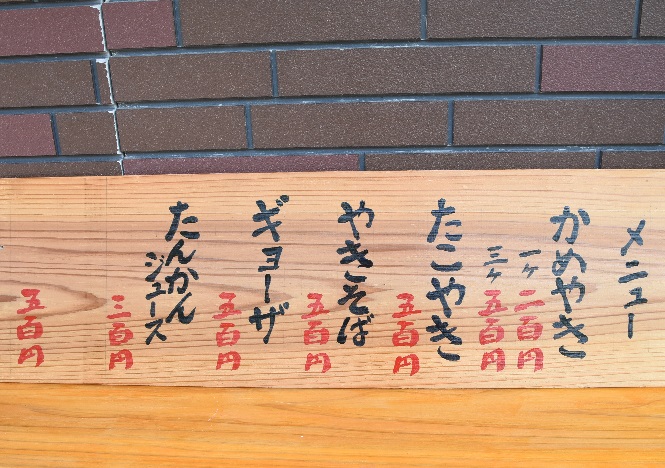 メニュー
かめやき
一ヶ 二百円
三ヶ 五百円
たこやき
五百円
やきそば
五百円
ギョーザ
五百円
たんかん
ジュース
三百円
五百円